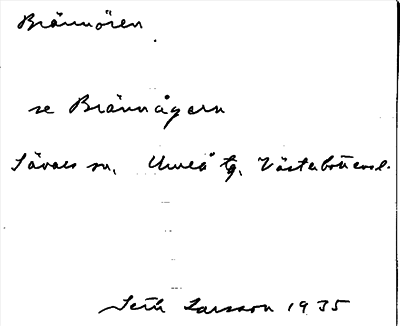 Brännören
se Brännågern
Sävars sn, Umeå tg, Västerbottens l.
Seth Larsson 1935